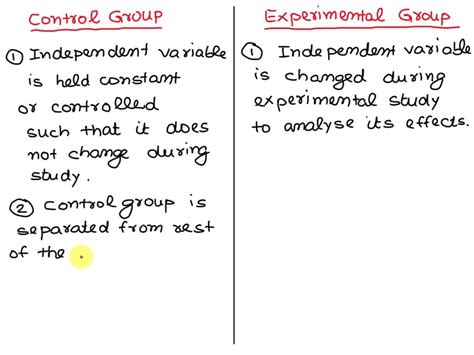 Control Group
① Independent variable
is held constant
or controlled
such that it does
not change during
study.
② control group is
separated from rest
of the
Experimental Group
① Independent variable
is changed during
experimental study
to analyse its effects.